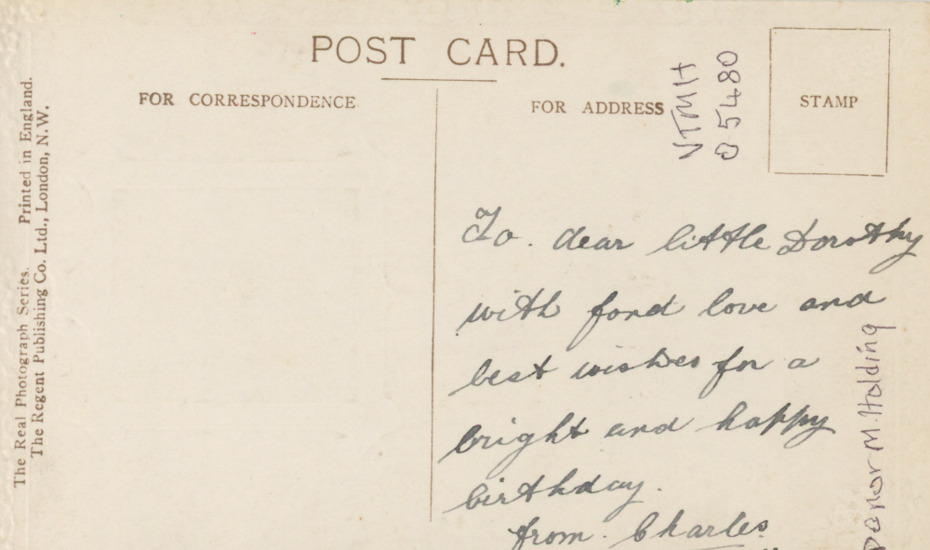 POST CARD.
FOR CORRESPONDENCE
FOR ADDRESS
STAMP
VTMH
05480
The Real Photograph Series. Printed in England.
The Regent Publishing Co. Ltd., London, N.W.
To. dear little Dorothy
with fond love and
best wishes for a
bright and happy
birthday.
from. Charles
Donor M. Holding